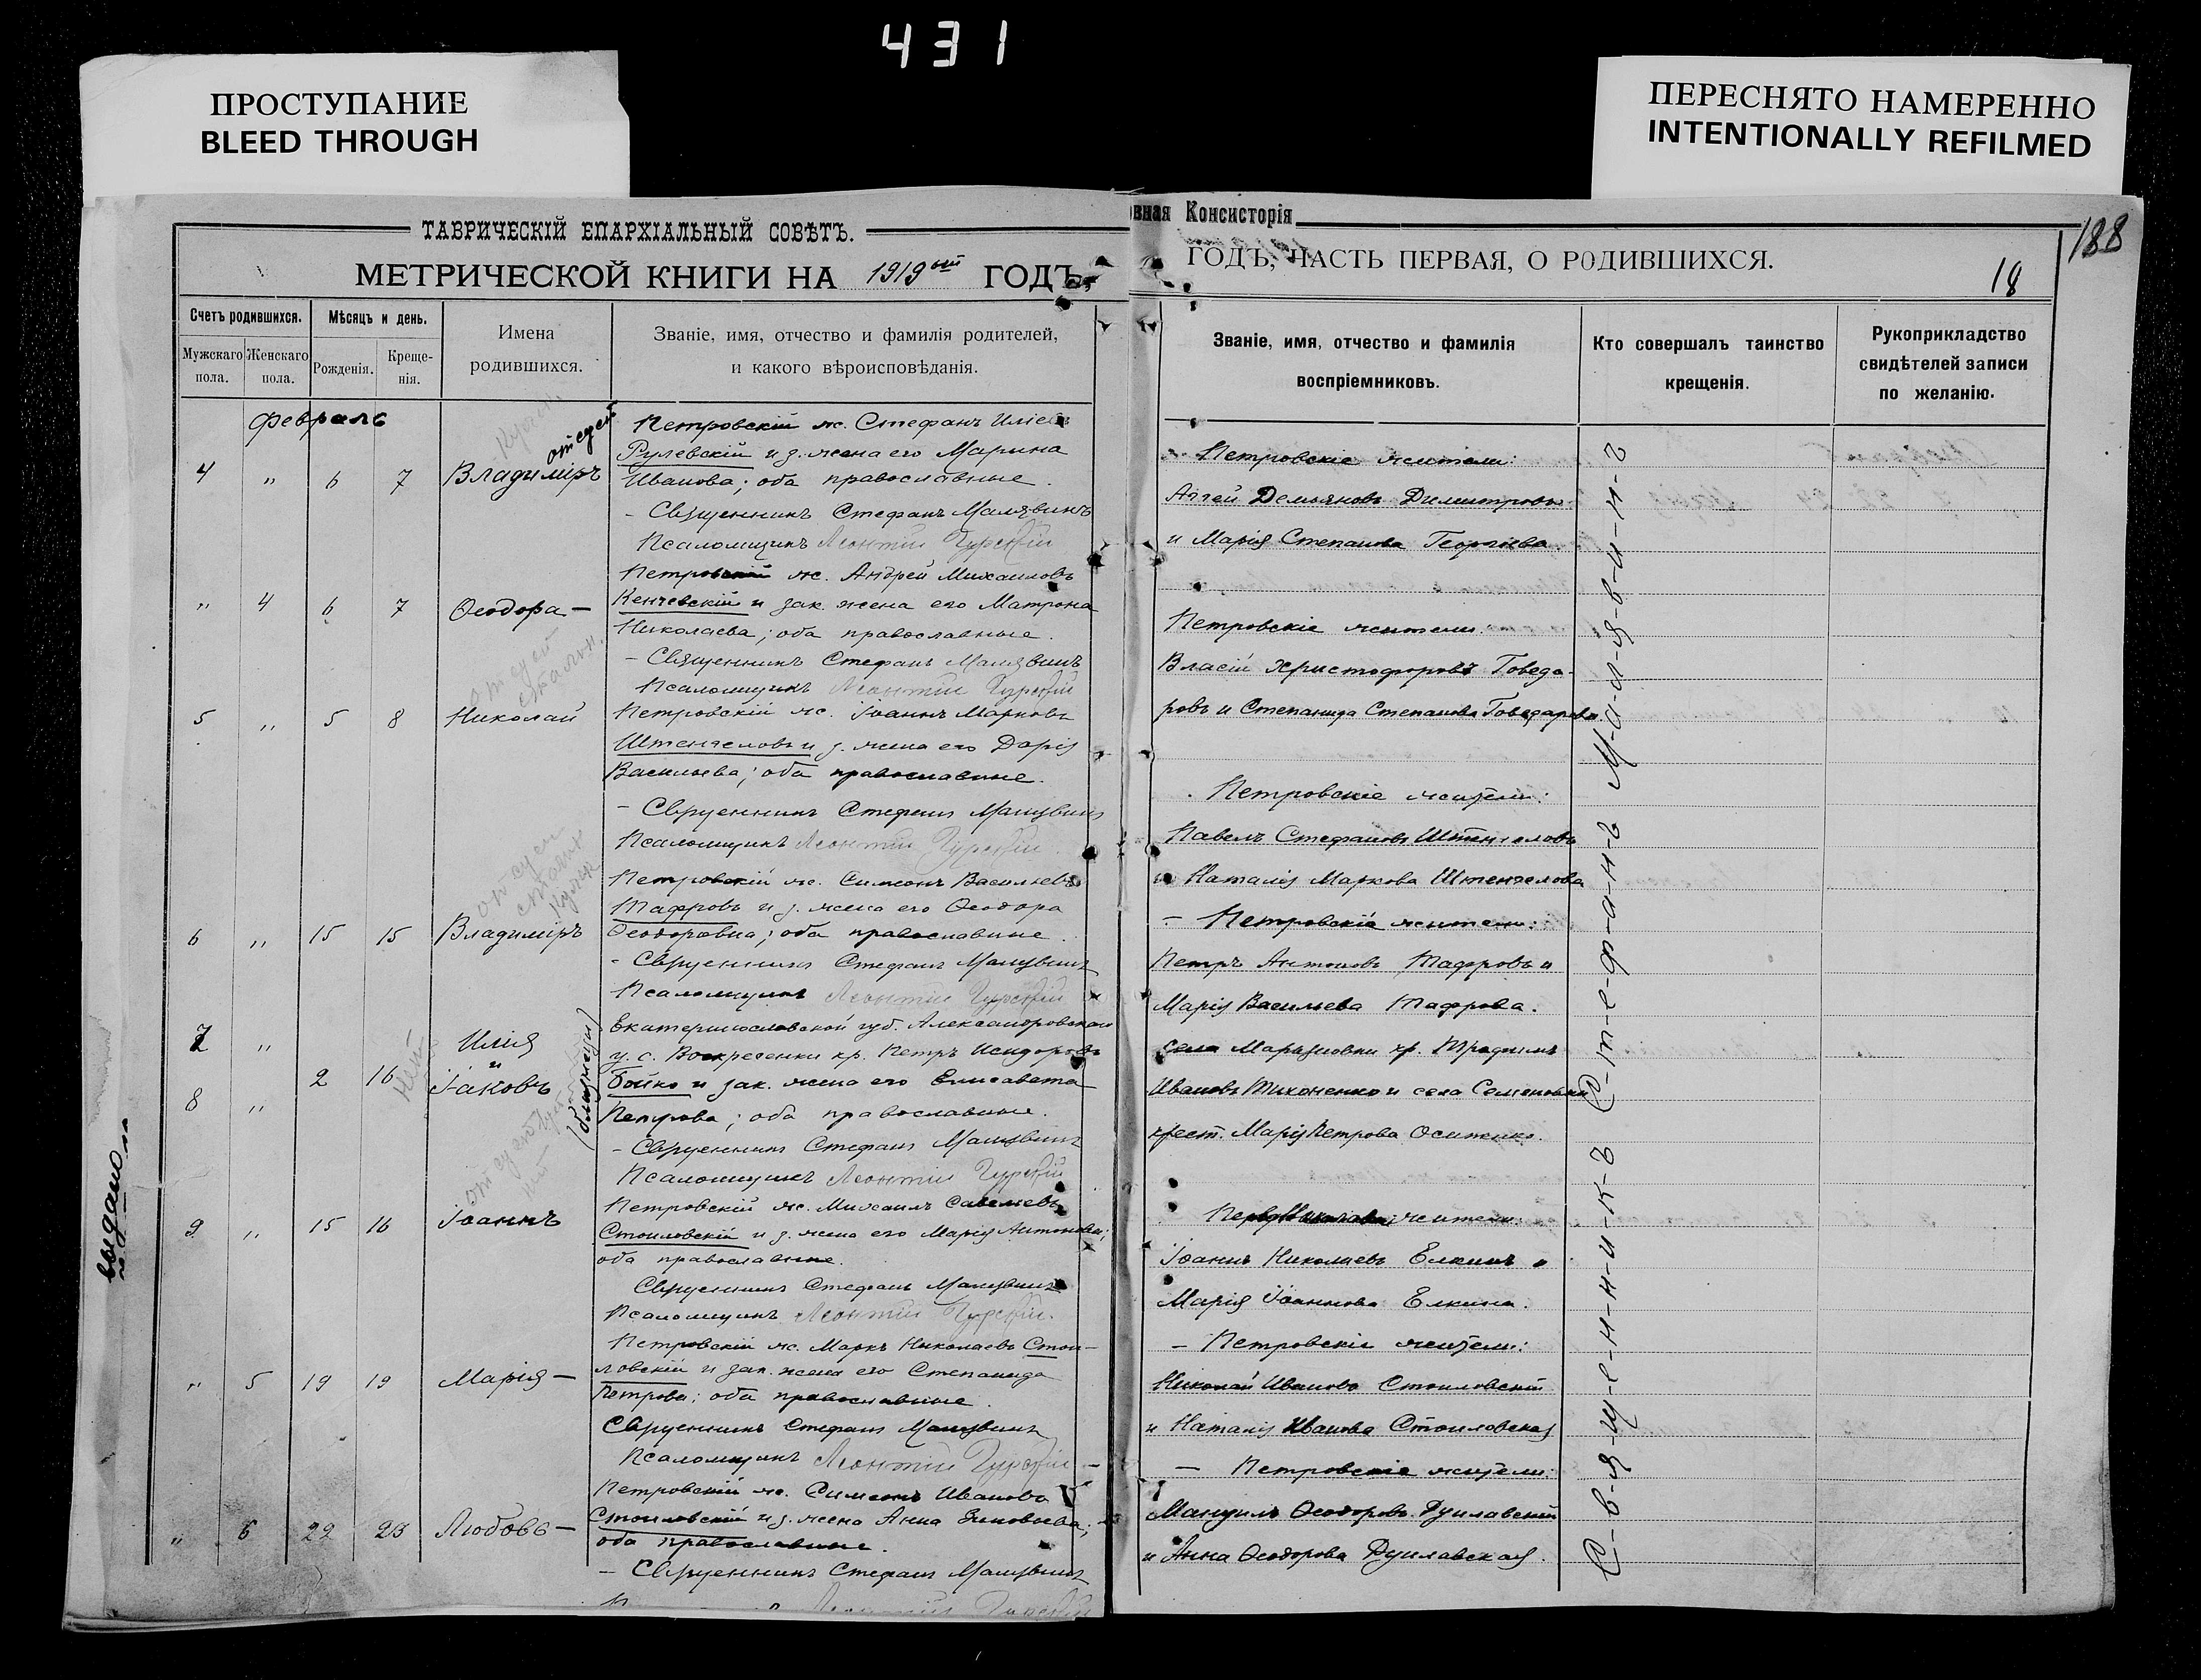 431
ПРОСТУПАНИЕ
BLEED THROUGH
ПЕРЕСНЯТО НАМЕРЕННО
INTENTIONALLY REFILMED
ТАВРИЧЕСКІЙ ЕПАРХІАЛЬНЫЙ СОВѢТЪ.
МЕТРИЧЕСКОЙ КНИГИ НА 1919ый ГОДЪ,
Счетъ родившихся.
Мѣсяцъ и день.
Имена родившихся.
Званіе, имя, отчество и фамилія родителей,
и какого вѣроисповѣданія.
Мужскаго пола.
Женскаго пола.
Рожденія.
Крещенія.
Февраль
4 " 6 7 Владиміръ
Петровскій ж. Стефанъ Иліевъ
Рулевскій и з. жена его Марина
Иванова; оба православные.
- Священникъ Стефанъ Малявинъ
Псаломщикъ Леонтій Гурскій
" 4 6 7 Ѳеодора —
Петровскій ж. Андрей Михаиловъ
Кенчевскій и зак. жена его Матрона
Николаева; оба православные.
- Священникъ Стефанъ Малявинъ
Псаломщикъ Леонтій Гурскій
5 " 5 8 Николай
Петровскій ж. Іоаннъ Марковъ
Штенгеловъ и з. жена его Дарія
Васильева; оба православные.
- Священникъ Стефанъ Малявинъ
Псаломщикъ Леонтій Гурскій
6 " 15 15 Владиміръ
Петровскій ж. Симеонъ Васильевъ
Тафровъ и з. жена его Ѳеодора
Ѳеодоровна; оба православные.
- Священникъ Стефанъ Малявинъ
Псаломщикъ Леонтій Гурскій
7 " Илія
и
8 " 2 16 Іаковъ
(близнецы)
Екатеринославской губ. Александровскаго
у. с. Воскресенки кр. Петръ Исидоровъ
Бойко и зак. жена его Елисавета
Петрова; оба православные.
- Священникъ Стефанъ Малявинъ
Псаломщикъ Леонтій Гурскій
9 " 15 16 Іоаннъ
Петровскій ж. Михаилъ Савельевъ
Стоиловскій и з. жена его Марія Антонова;
оба православные.
Священникъ Стефанъ Малявинъ
Псаломщикъ Леонтій Гурскій.
" 5 19 19 Марія —
Петровскій ж. Маркъ Николаевъ Стои-
ловскій и зак. жена его Степанида
Петрова; оба православные.
Священникъ Стефанъ Малявинъ
Псаломщикъ Леонтій Гурскій
" 6 22 23 Любовь —
Петровскій ж. Симеонъ Ивановъ
Стоиловскій и з. жена Анна Зиновьева;
оба православные.
- Священникъ Стефанъ Малявинъ
Леонтій Гурскій
выдано
вная Консисторія
188
ГОДЪ, ЧАСТЬ ПЕРВАЯ, О РОДИВШИХСЯ.
18
Званіе, имя, отчество и фамилія
воспріемниковъ.
Кто совершалъ таинство
крещенія.
Рукоприкладство
свидѣтелей записи
по желанію.
Петровскіе жители:
Аггей Демьяновъ Димитровъ
и Марія Степанова Георгіева
Петровскіе жители.
Власій Христофоровъ Говеда-
ровъ и Степанида Степанова Говедарова.
Петровскіе жители:
Павелъ Стефановъ Штенгеловъ
и Наталія Маркова Штенгелова
- Петровскіе жители:
Петръ Антоновъ Тафровъ и
Марія Васильева Тафрова.
села кр. Трофимъ
Ивановъ Тихоненко и села Семеновки
крест. Марія Петрова Осипенко.
жители:
Іоаннъ Николаевъ Елкинъ и
Марія Іоаннова Елкина.
- Петровскіе жители:
Николай Ивановъ Стоиловскій
и Наталія Иванова Стоиловская
— Петровскіе жители:
Мануилъ Ѳеодоровъ Дуилавскій
и Анна Ѳеодорова Дуилавская.
С-в-я-щ-е-н-н-и-к-ъ С-т-е-ф-а-н-ъ М-а-л-я-в-и-н-ъ